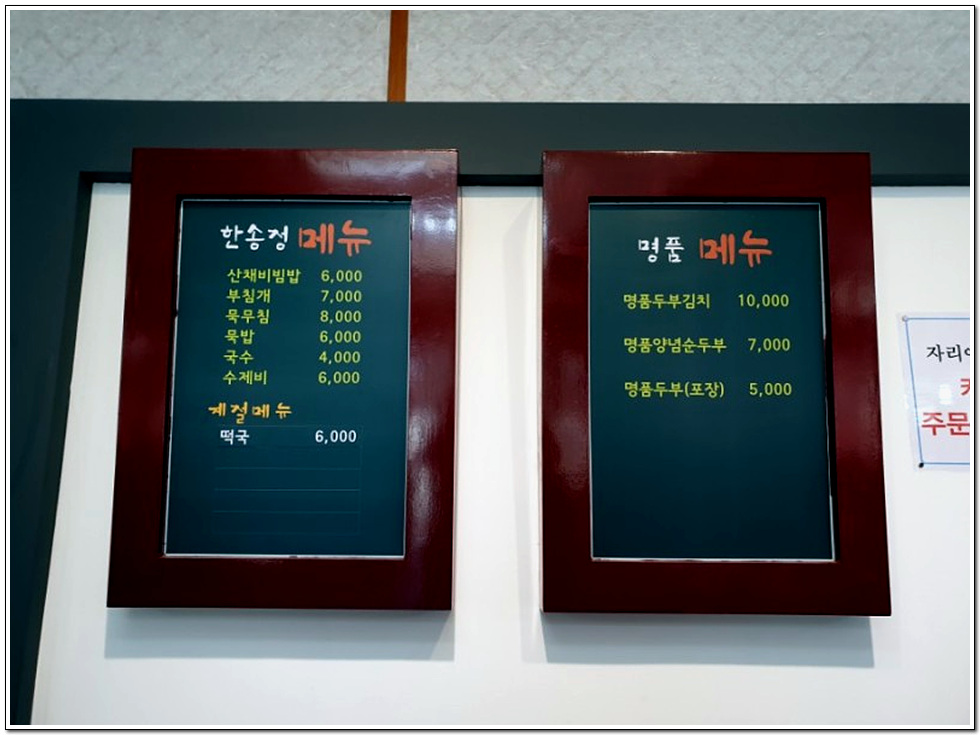 한송정 메뉴
산채비빔밥 6,000
부침개 7,000
묵무침 8,000
묵밥 6,000
국수 4,000
수제비 6,000
계절메뉴
떡국 6,000
명품 메뉴
명품두부김치 10,000
명품양념순두부 7,000
명품두부(포장) 5,000
주문